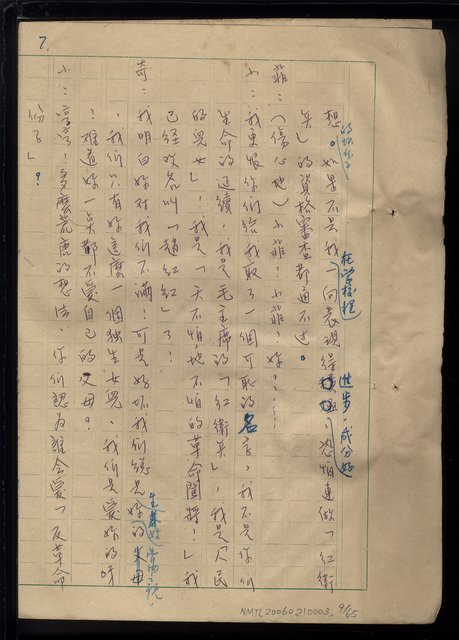 7.
的坏份子
在学校裡
進步，成分好
想。如果不是我一向表現得積極，恐怕連做「紅衛
兵」的資格審查都通不过。
菲：（傷心地）小菲！小菲！妳！……
小：我更恨你們給我取了一個可恥的名字，我不是你們
生命的延續，我是毛主席的「紅衛兵」，我是「人民
的兒女」！我是「天不怕，地不怕的革命闖將！」我
已經改名叫「趙紅紅」了！
奇：我明白妳对我们不滿！可是好坏我们總是妳的父母
生養妳
，我们只有妳這麼一個独生女兒，我们是愛妳的呀
！難道妳一矣都不愛自己的父母？
小：哼哼！多麼荒唐的想法，你们認為誰会愛「反革命
份子」？
NMTL20060210003, 9/65